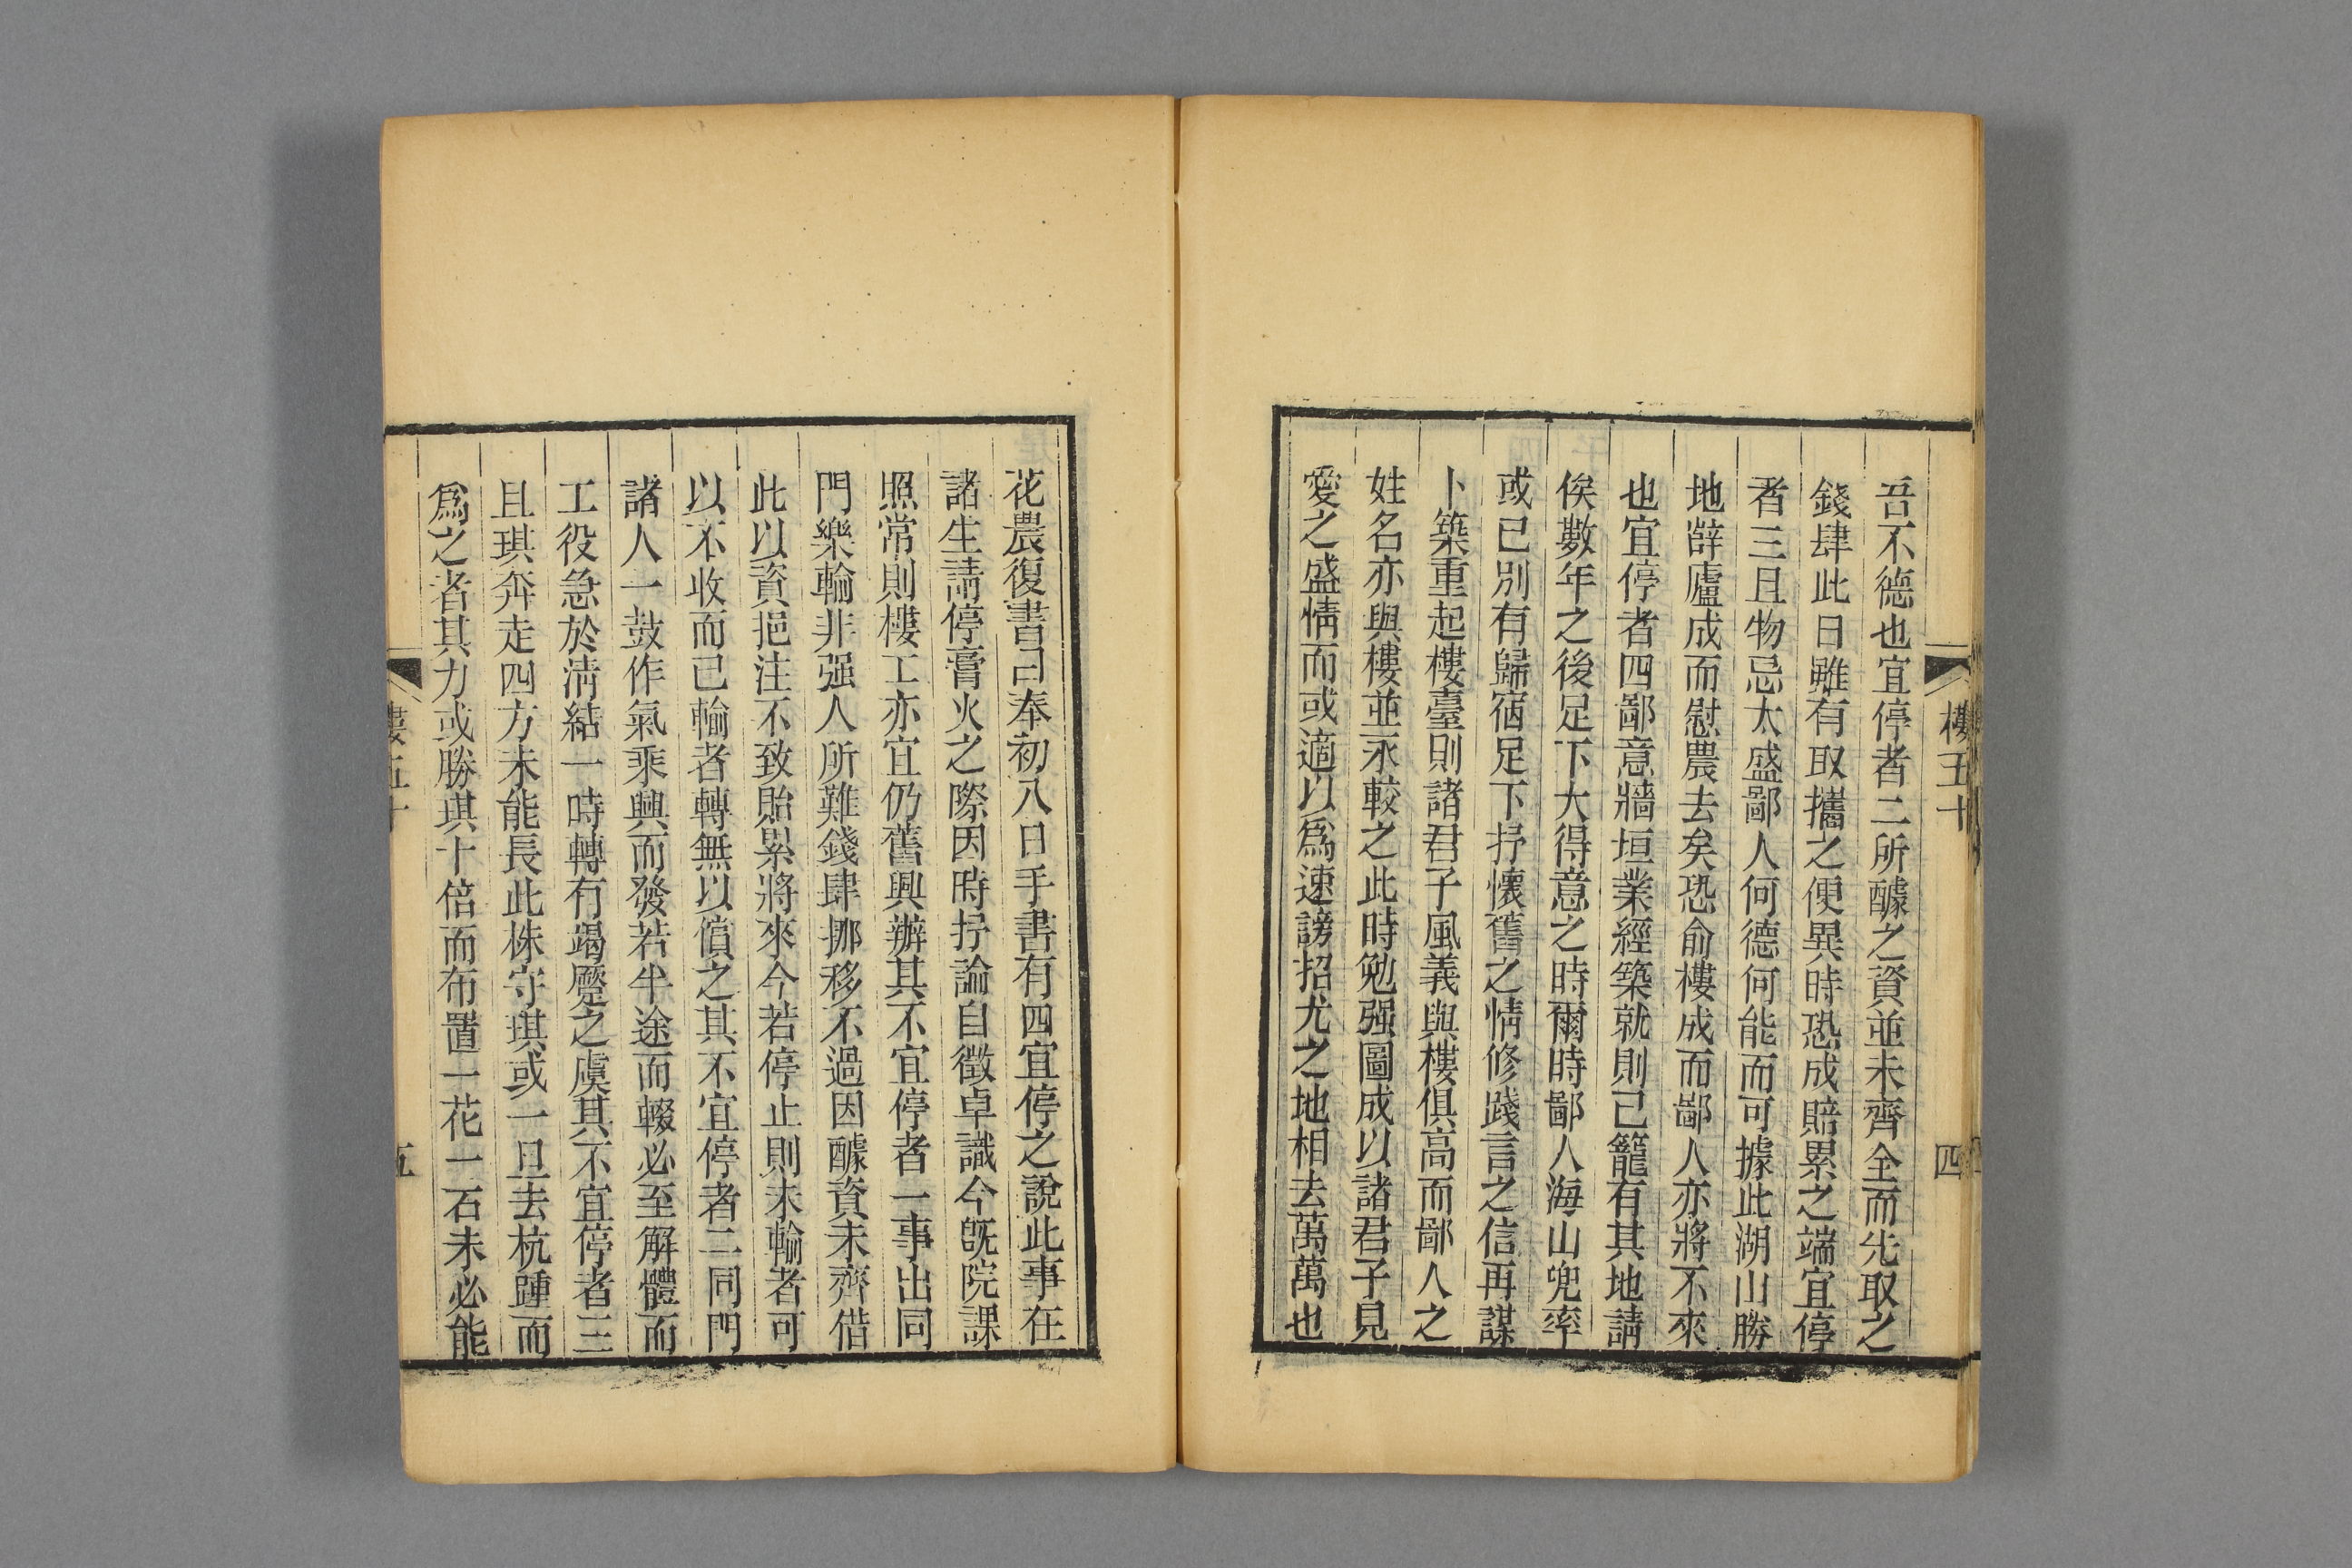 樓五十
四
吾不德也宜停者二所醵之資並未齊全而先取之
錢肆此日雖有取攜之便異時恐成賠累之端宜停
者三且物忌太盛鄙人何德何能而可據此湖山勝
地薛廬成而慰農去矣恐俞樓成而鄙人亦將不來
也宜停者四鄙意牆垣業經築就則已籠有其地請
俟數年之後足下大得意之時爾時鄙人海山兜率
或已別有歸宿足下抒懷舊之情修踐言之信再謀
卜築重起樓臺則諸君子風義與樓俱高而鄙人之
姓名亦與樓並永較之此時勉强圖成以諸君子見
愛之盛情而或適以爲速謗招尤之地相去萬萬也
花農復書曰奉初八日手書有四宜停之說此事在
諸生請停膏火之際因時抒論自徵卓識今旣院課
照常則樓工亦宜仍舊興辦其不宜停者一事出同
門樂輸非强人所難錢肆挪移不過因醵資未齊借
此以資挹注不致貽累將來今若停止則未輸者可
以不收而已輸者轉無以償之其不宜停者二同門
諸人一鼓作氣乘興而發若半途而輟必至解體而
工役急於淸結一時轉有竭蹷之虞其不宜停者三
且琪奔走四方未能長此株守琪或一旦去杭踵而
爲之者其力或勝琪十倍而布置一花一石未必能
樓五十
五